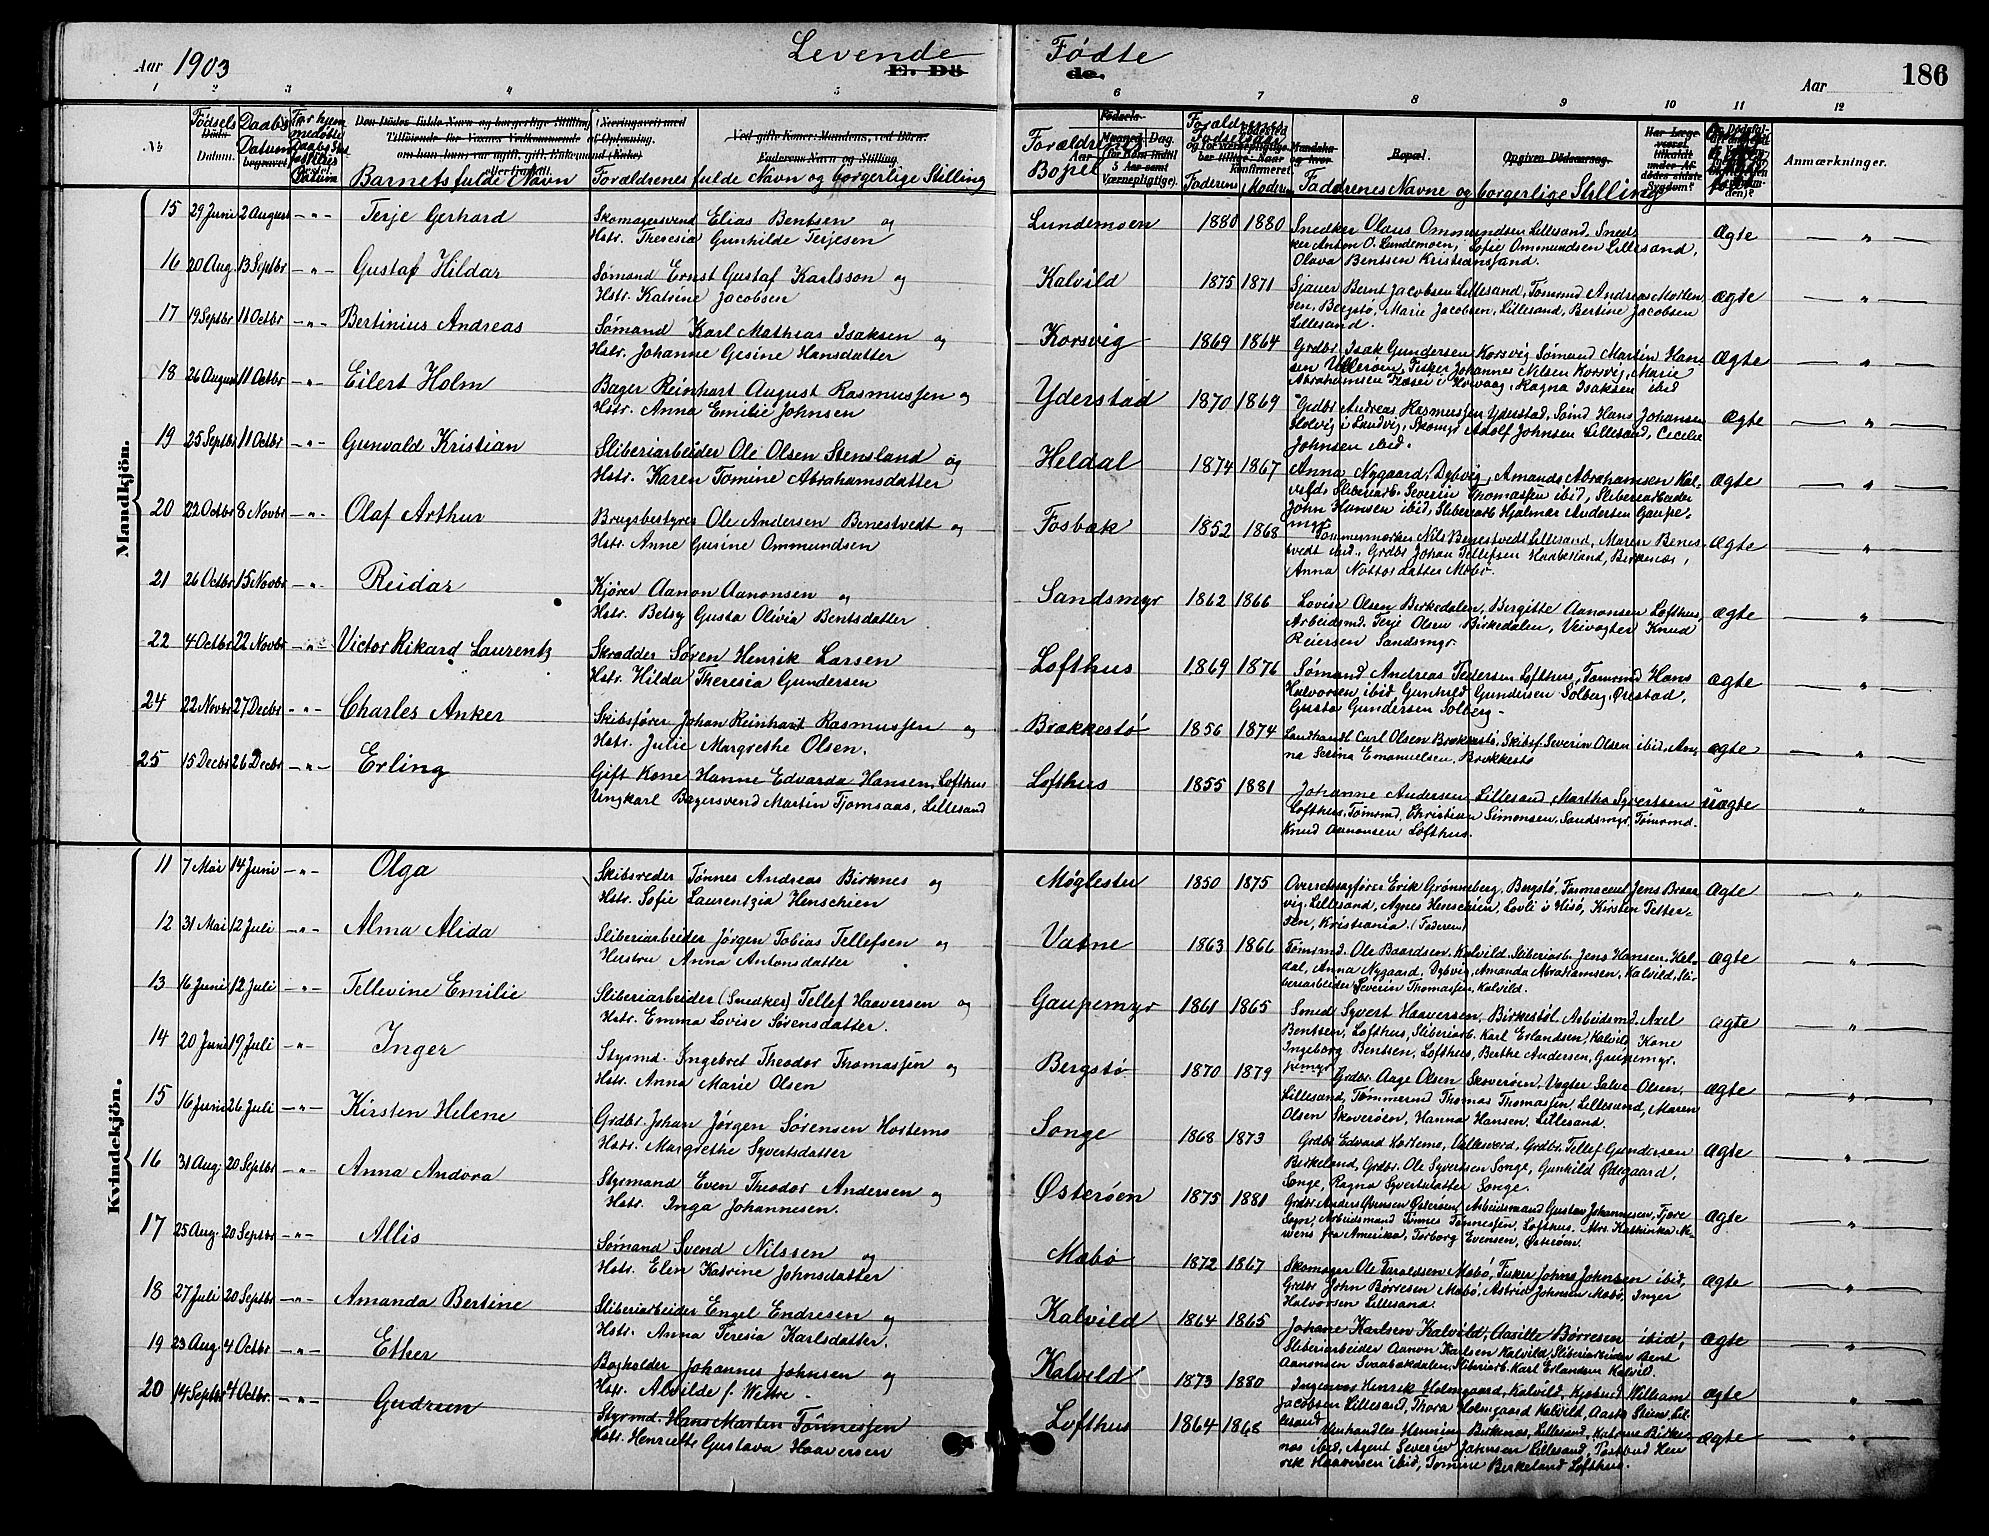 Aar 1903 Levende Fødte Aar 186
E. Dö de.
1 2 3 4 5 6 7 8 9 10 11 12
№ Fødsels Datum. Daabs Datum Barnets fulde Navn Forældrenes fulde Navn og borgerlige Stilling Forældrenes Bopel Forældrenes Fødselsaar Faderen Moderen Faddrenes Navne og borgerlige Stilling Anmærkninger.
Mandkjön.
15 29 Juni 2 August -„- Terje Gerhard Skomagersvend Elias Bentsen og Lundemoen 1880 1880 Snedker Olaus Ommundsen Lillesand, Sned- Ægte „
Hstr. Theresia Gunhilde Terjesen ker Anton O. Lundemoen, Sofie Ommundsen Lillesand,
Olava Bentsen Kristiansand.
16 20 Aug. 13 Septbr -„- Gustaf Hildar Sømand Ernst Gustaf Karlsson og Kalvild 1875 1871 Sjauer Bernt Jacobsen Lillesand, Tømmd Andreas Morten- Ægte „
Hstr. Katrine Jacobsen sen, Bergstø, Marie Jacobsen, Lillesand, Bertine Jacobsen
Lillesand.
17 19 Septbr 11 Octbr -„- Bertinius Andreas Sømand Karl Mathias Isaksen og Korsvig 1869 1864 Grdbr. Isak Gundersen Korsvig Sømand Martin Han- Ægte „
Hstr. Johanne Gesine Hansdatter sen Ulleröen, Fisker Johannes Nilsen Korsvig, Marie
Abrahamsen i Høvaag, Ragna Isaksen ibid
18 26 August 11 Octbr -„- Eilert Holm Bager Reinhart August Rasmussen og Yderstad 1870 1869 Grdbr Andreas Rasmussen Yderstad, Sømd Hans Johansen Ægte „
Hstr. Anna Emilie Johnsen i Landvig, Skomgr Adolf Johnsen Lillesand, Cecelie
Johnsen ibid.
19 25 Septbr 11 Octbr -„- Gunvald Kristian Sliberiarbeider Ole Olsen Stensland og Heldal 1874 1867 Anna Nygaard, Dybvig, Amanda Abrahamsen Kal- Ægte „
Hstr. Karen Tomine Abrahamsdatter vild, Sliberiarb. Severin Thomassen ibid, Sliberiarbeider
John Hansen ibid, Sliberiarb Hjalmar Andersen Gaupe-
myr
20 22 Octbr 8 Novbr -„- Olaf Arthur Brugsbestyrer Ole Andersen Benestvedt og Fosbæk 1852 1868 Tømmermerker Nils Benestvedt Lillesand, Maren Benes- Ægte „
Hstr. Anne Gusine Ommundsen tvedt ibid., Grdbr Johan Tellefsen Haabesland, Birkenæs,
Anna Nottosdatter Møbø.
21 26 Octbr 15 Novbr „ Reidar Kjører Aanon Aanonsen og Sandsmyr 1862 1866 Lovise Olsen Birkedalen, Bergitte Aanonsen Lofthus, Ægte „
Hstr. Betsy Gusta Olivia Bentsdatter Arbeidsmd. Terje Olsen Birkedalen, Veivogter Knud
Reiersen Sandsmyr.
22 4 Octbr 22 Novbr -„- Victor Rikard Laurentz Skrædder Søren Henrik Larsen Lofthus 1869 1876 Sømand Andreas Pedersen Lofthus, Tømrmd Hans Ægte „
Hstr. Hilda Theresia Gundersen Halvorsen ibid, Gunhild Gundersen Solberg, Ørestad,
Gusta Gundersen Solberg.
24 22 Novbr 27 Decbr -„- Charles Anker Skibsfører Johan Reinhart Rasmussen og Brækkestø 1856 1874 Landhandl. Carl Olsen Brækkestø, Skibsf. Severin Olsen ibid, An- Ægte „
Hstr. Julie Margrethe Olsen. na Serina Emanuelsen, Brækkestø
25 15 Decbr 26 Decbr -„- Erling Gift Kone Hanne Edvarda Hansen, Lofthus Lofthus 1855 1881 Johanne Andersen Lillesand, Martha Syvertsen uægte „
Ungkarl Bagersvend Martin Tjomsaas, Lillesand Lofthus, Tømrmd. Christian Simonsen, Sandsmyr, Tømrmd.
Knud Aanonsen Lofthus.
Kvindekjön.
11 7 Mai 14 Juni -„- Olga Skibsreder Tønnes Andreas Birknes og Møglestu 1850 1875 Overretssagfører Erik Grønneberg, Bergstø, Farmaceut Jens Braar- Ægte „
Hstr. Sofie Laurentzia Henschien vig, Lillesand, Agnes Henschien, Lovli i Hisø, Kirsten Petter-
sen, Kristiania. (Faderen)
12 31 Mai 12 Juli -„- Alma Alida Sliberiarbeider Jörgen Tobias Tellefsen og Vatne 1863 1866 Tømrmd. Ole Baardsen Kalvild, Sliberiarb. Jens Hansen, Hel- Ægte „
Hustru Anna Antonsdatter dal, Anna Nygaard, Dybvig, Amanda Abrahamsen, Kalvild, Sli-
beriarbeider Severin Thomassen, Kalvild.
13 16 Juni 12 Juli -„- Tellevine Emilie Sliberiarbeider (Snedker) Tellef Haaversen og Gaupemyr 1861 1865 Smed Syvert Haaversen, Birkestøl, Arbeidsmd. Axel Ægte „
Hstr. Emma Lovise Sørensdatter. Bentsen, Lofthus, Sliberiarb. Karl Erlandsen, Kalvild, Kone
Ingeborg Bentsen, Lofthus, Berthe Andersen, Gaupemyr.
14 20 Juni 19 Juli -„- Inger Styrmd. Ingebret Theodor Thomassen og Bergstø 1870 1879 Grdbr. Aage Olsen Skoverøen, Vogter Salve Olsen, Ægte „
Hstr. Anna Marie Olsen Lillesand, Tømmermd Thomas Thomassen, Lillesand, Maren
Olsen Skoverøen, Hanna Hansen, Lillesand.
15 16 Juni 26 Juli -„- Kirsten Helene Grdbr Johan Jörgen Sørensen Hortemo Songe 1868 1873 Grdbr Edvard Hortemo, Vallesverd, Grdbr. Tellef Gundersen Ægte „
Hstr. Margrethe Syvertsdatter Birkeland, Grdbr. Ole Syvertsen Songe, Gunhild Ødegaard,
Songe, Ragna Syvertsdatter Songe.
16 31 Aug. 20 Septbr -„- Anna Andora Styrmand Even Theodor Andersen og Østerøen 1875 1881 Grdbr. Anders Evensen Østerøen, Arbeidsmand Gustav Johannesen, Fjære Ægte „
Hstr. Inga Johannesen. Sogn, Arbeidsmand Tønnes Tønnessen, Lofthus. Mrs. Kathinka
fra Amerika, Torborg Evensen, Østerøen.
17 25 Aug. 20 Septbr -„- Allis Sømand Svend Nilssen og Møbø 1872 1867 Skomager Ole Taraldsen Møbø, Fisker Johns Johnsen ibid, Ægte „
Hstr. Elen Katrine Johnsdatter Grdbr John Børresen Møbø, Astrid Johnsen Møbø, Inger
Halvorsen Lillesand.
18 27 Juli 20 Septbr -„- Amanda Bertine Sliberiarbeider Engel Endresen og Kalvild 1864 1865 Johane Karlsen Kalvild, Aasille Børresen ibid, Ægte „
Hstr. Anna Teresia Karlsdatter. Sliberiarbeider Aanon Karlsen Kalvild, Sliberiarbeider Bent
Aanonsen Svaabækdalen, Sliberiarb. Karl Erlandsen Kalvild.
19 23 Aug. 4 Octbr -„- Ether Bogholder Johannes Johnsen og Kalvild 1873 1880 Ingeniør Henrik Holmgaard, Kalvild, Kjøbmd William Ægte „
Hstr. Alvilde f. Jacobsen Lillesand, Thora Holmgaard Kalvild, Aasta Steen Lil-
lesand
20 14 Septbr 4 Octbr. -„- Gudrun Styrmd. Hans Martin Tønnessen Lofthus 1864 1868 Henning Birknes, Lillesand, Katrine Birke- Ægte „
Hstr. Henriette Gustava Haaversen næs ibid, Agent Severin Johnsen Lillesand, Postbud Hen-
rik Haaversen ibid, Tomine Birkeland Lofthus.